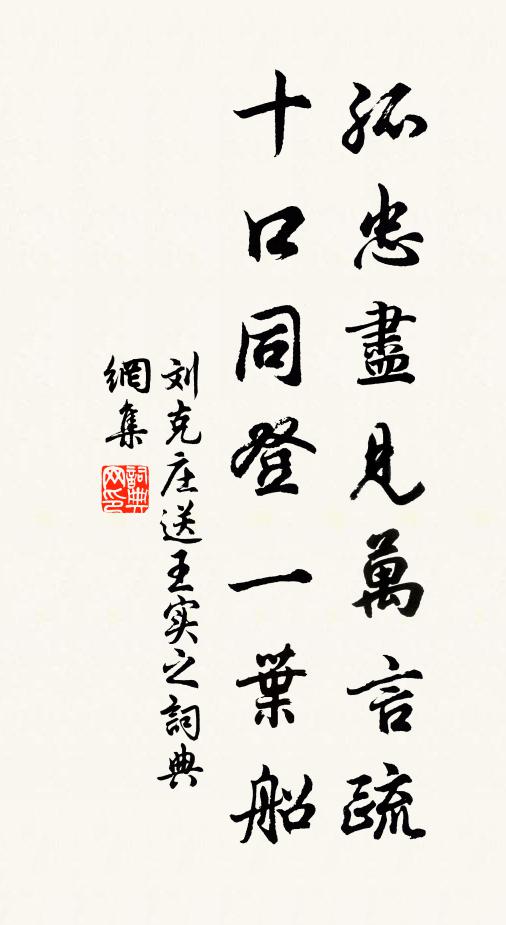 孤忠盡見萬言疏
十口同登一葉船
刘克庄送王实之詞典
網集
詞典網印